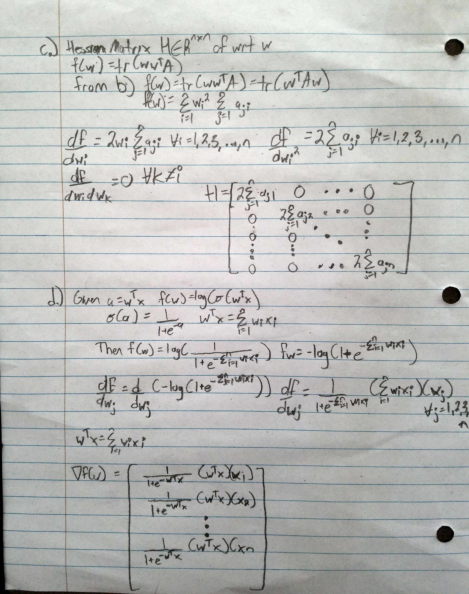 c.) Hessian Matrix H∈R^{n×n} of wrt w
f(w)=tr(ww^TA)
from b) f(w)=tr(ww^TA)=tr(w^TAw)
f(w)= Σ_{i=1}^n w_i^2 Σ_{j=1}^n a_{ji}
df/dw_i = 2w_i Σ_{j=1}^n a_{ji} ∀i=1,2,3,...,n df/dw_i^2 = 2Σ_{j=1}^n a_{ji} ∀i=1,2,3,...,n
df/dw_idw_k =0 ∀k≠i
H= [ 2Σ_{j=1}^n a_{j1} 0 ... 0
0 2Σ_{j=1}^n a_{j2} ... 0
0 0
0 0 ... 2Σ_{j=1}^n a_{jn} ]
d.) Given a=w^Tx f(w)=log(σ(w^Tx))
σ(a)= 1/(1+e^{-a}) w^Tx=Σ_{i=1}^n w_ix_i
Then f(w)=log(1/(1+e^{-Σ_{i=1}^n w_ix_i})) fw=-log(1+e^{-Σ_{i=1}^n w_ix_i})
df/dw_j = d/dw_j (-log(1+e^{-Σ_{i=1}^n w_ix_i})) df/dw_j = 1/(1+e^{-Σ_{i=1}^n w_ix_i}) (Σ_{i=1}^n w_ix_i)(x_j) ∀j=1,2,3
n
w^Tx=Σ_{i=1}^n w_ix_i
∇f(w) = [ 1/(1+e^{-w^Tx}) (w^Tx)(x_1)
1/(1+e^{-w^Tx}) (w^Tx)(x_2)
⋮
1/(1+e^{-w^Tx}) (w^Tx)(x_n ]